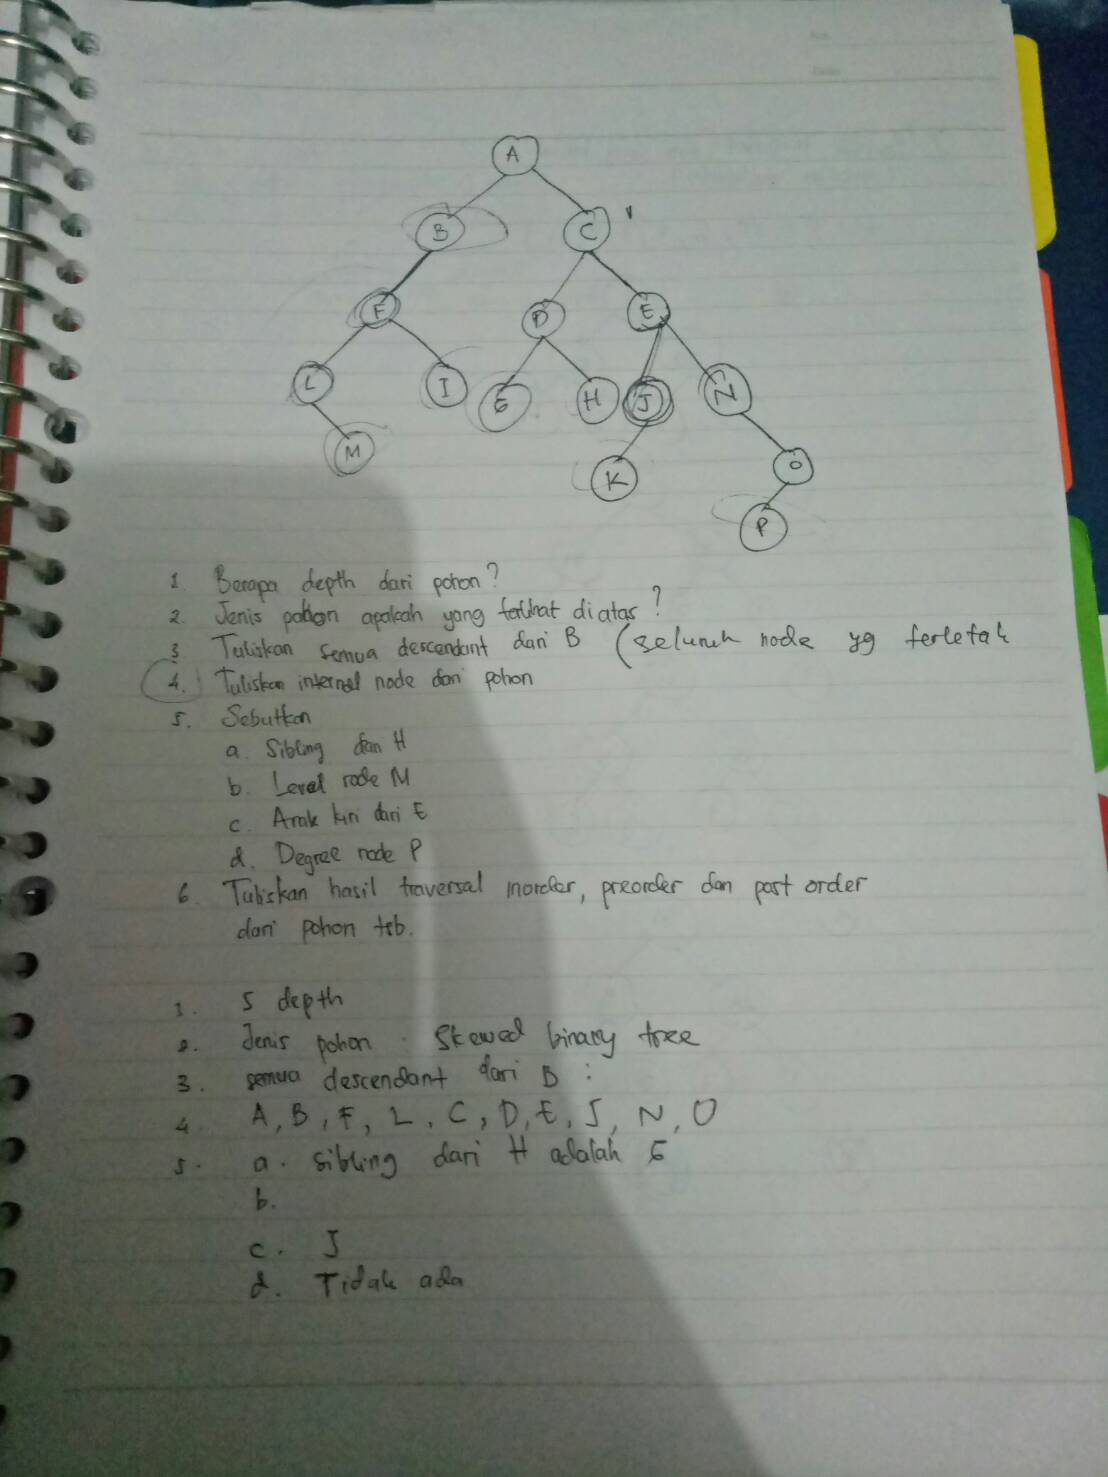 A
B C
F D E
L I G H J N
M K O
P
1. Berapa depth dari pohon?
2. Jenis pohon apakah yang terlihat diatas?
3. Tuliskan semua descendant dari B (seluruh node yg terletak
4. Tuliskan internal node dari pohon
5. Sebutkan
a. Sibling dari H
b. Level node M
c. Anak kiri dari E
d. Degree node P
6. Tuliskan hasil traversal inorder, preorder dan post order
dari pohon tsb.
1. 5 depth
2. Jenis pohon : Skewed binary tree
3. semua descendant dari B :
4. A, B, F, L, C, D, E, J, N, O
5. a. sibling dari H adalah G
b.
c. J
d. Tidak ada